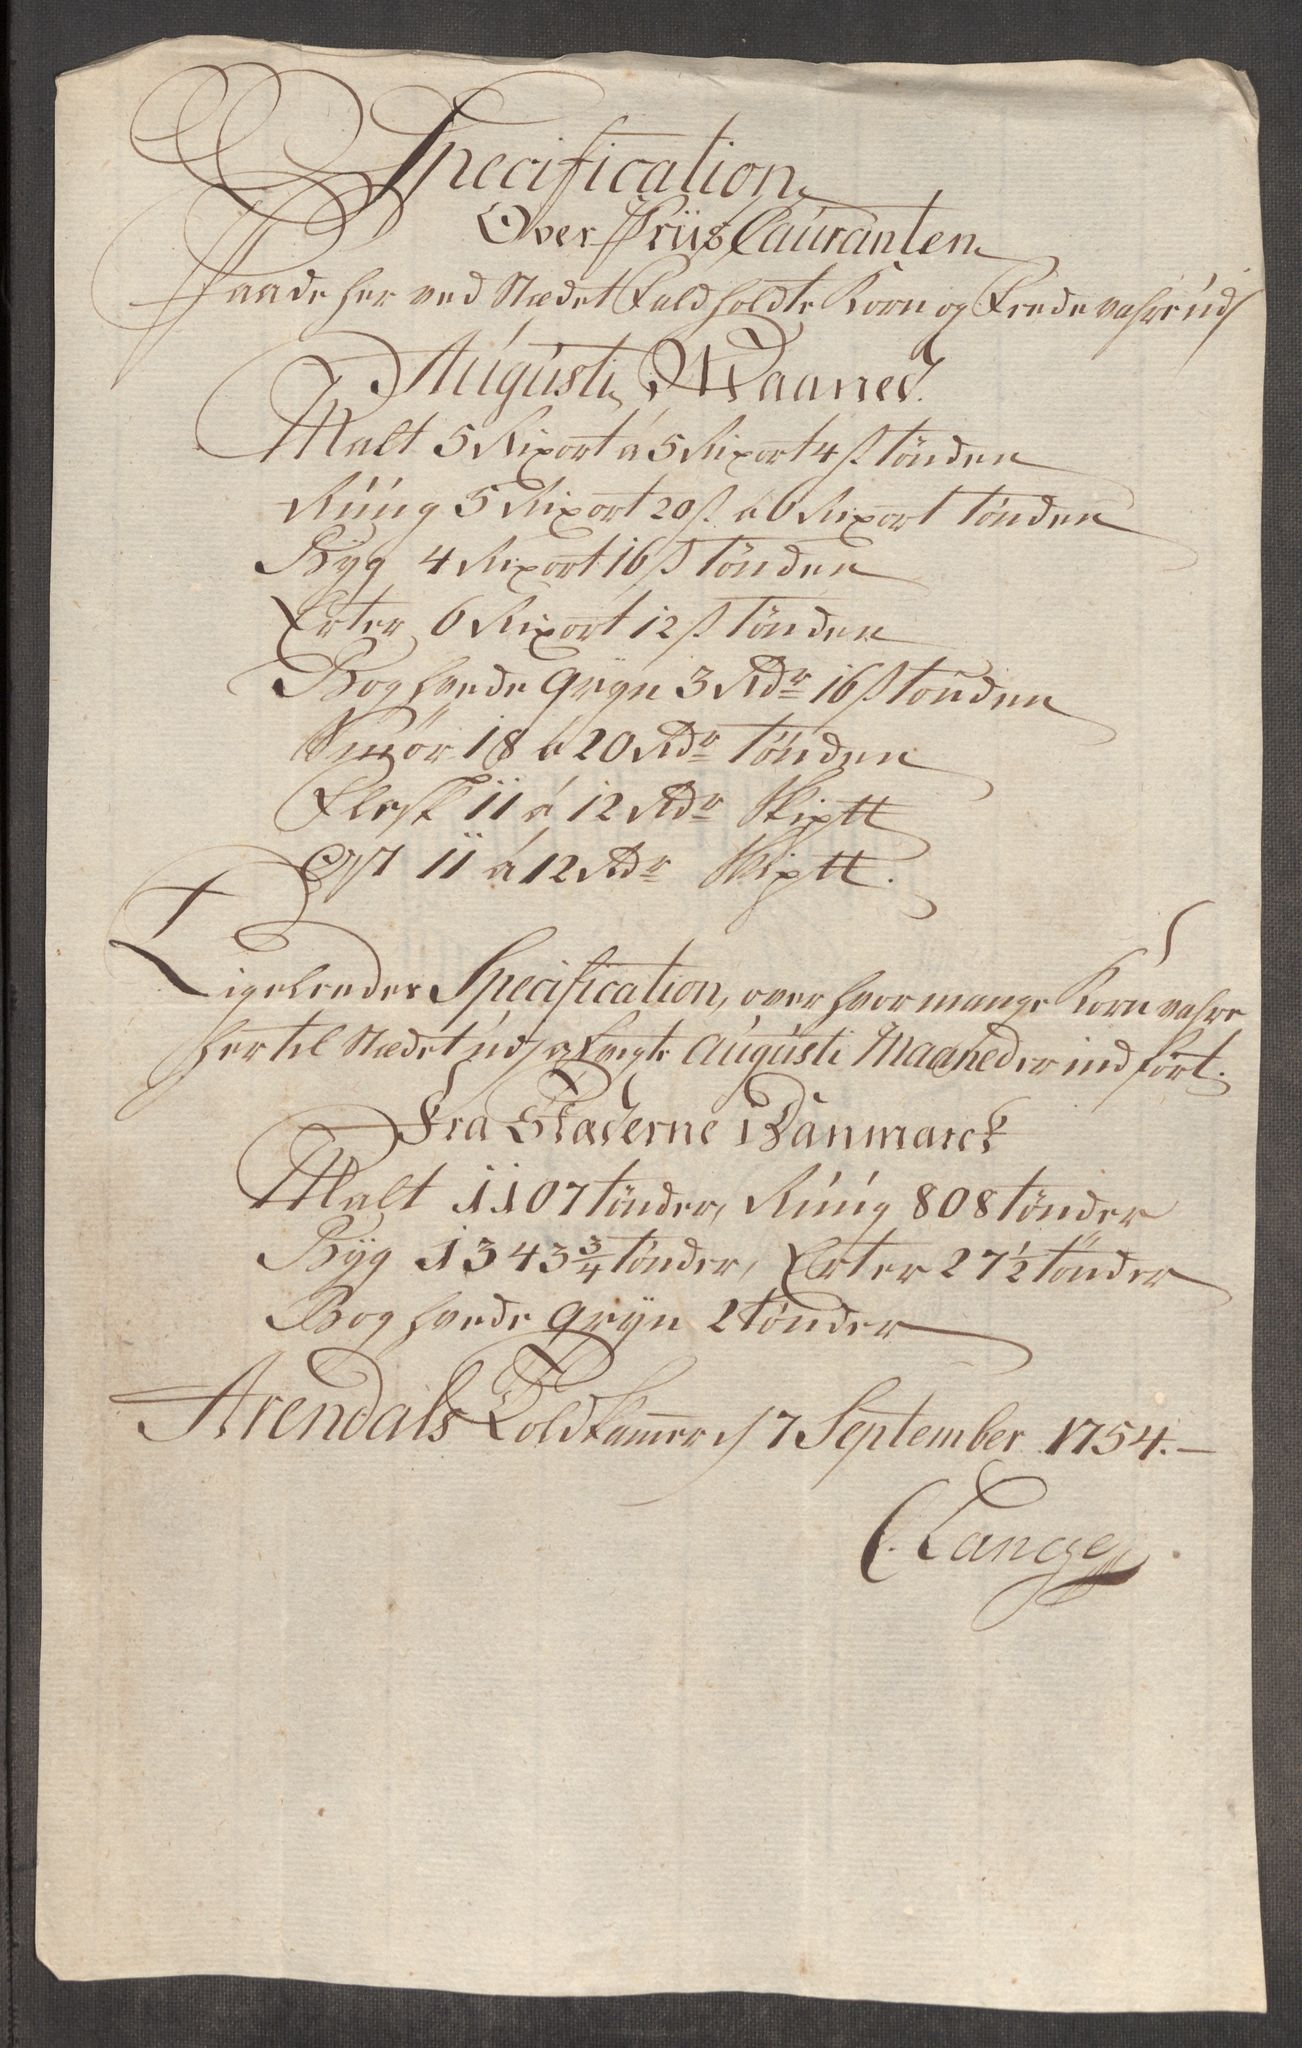 Specification
Over Priis Couranten
Paa de her ved Stædet Fald holdte Korn og Fede vahre udj
Augusti Maaned.
Malt 5 Rixort á 5 Rixort 4 ß tönden
Rúúg 5 Rixort 20 ß á 6 Rixort tönden
Byg 4 Rixort 16 ß tönden
Erter 6 Rixort 12 ß tönden
Boghvede gryn 3 Rdr 16 ß tönden
Smör 18 á 20 Rdr tönden
Flesk 11 á 12 Rdr Skiptt
Ost 11 á 12 Rdr Skiptt.
Ligeleedes Specification, over hvor mange Korn vahre
her til Stædet udj Augústi Maaned er ind fört.
Fra Stæderne i Danmarck
Malt 1107 tönder, Rúúg 808 tönder
Byg 1343 3/4 tönder, Erter 27 1/2 tönder
Boghvede gryn 2 tönder
Arendals Toldkammer d 7 September 1754.
C. Lange